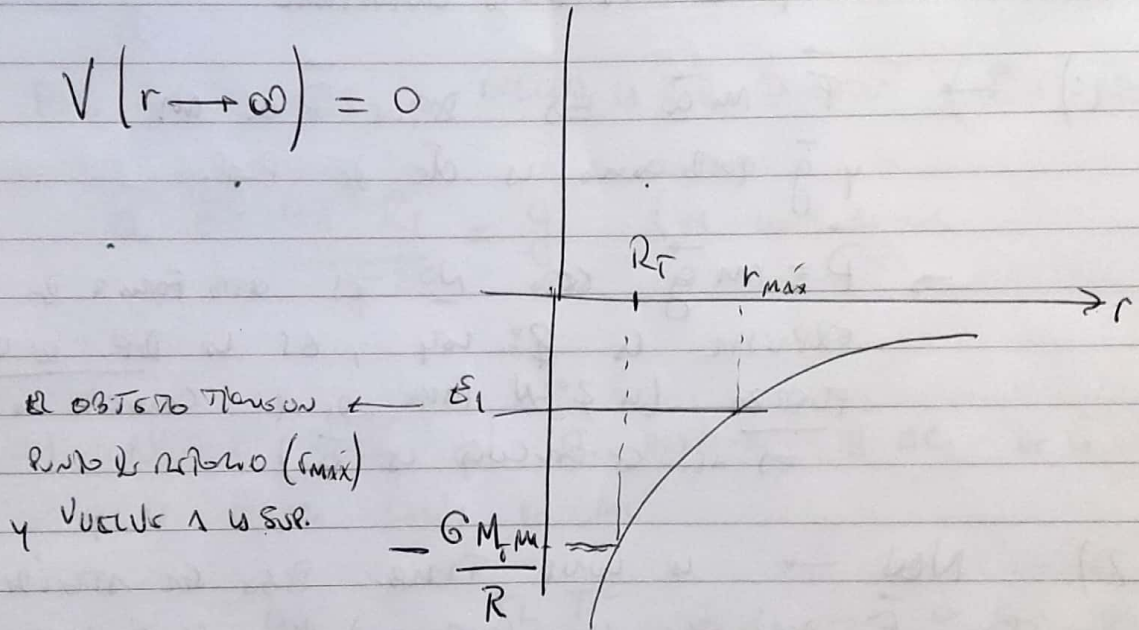 V(r → ∞) = 0
R_T
r_máx
r
EL OBJETO TIENE UN ← E_1
PUNTO DE RETORNO (r_máx)
Y VUELVE A LA SUP.
- G M_T m / R